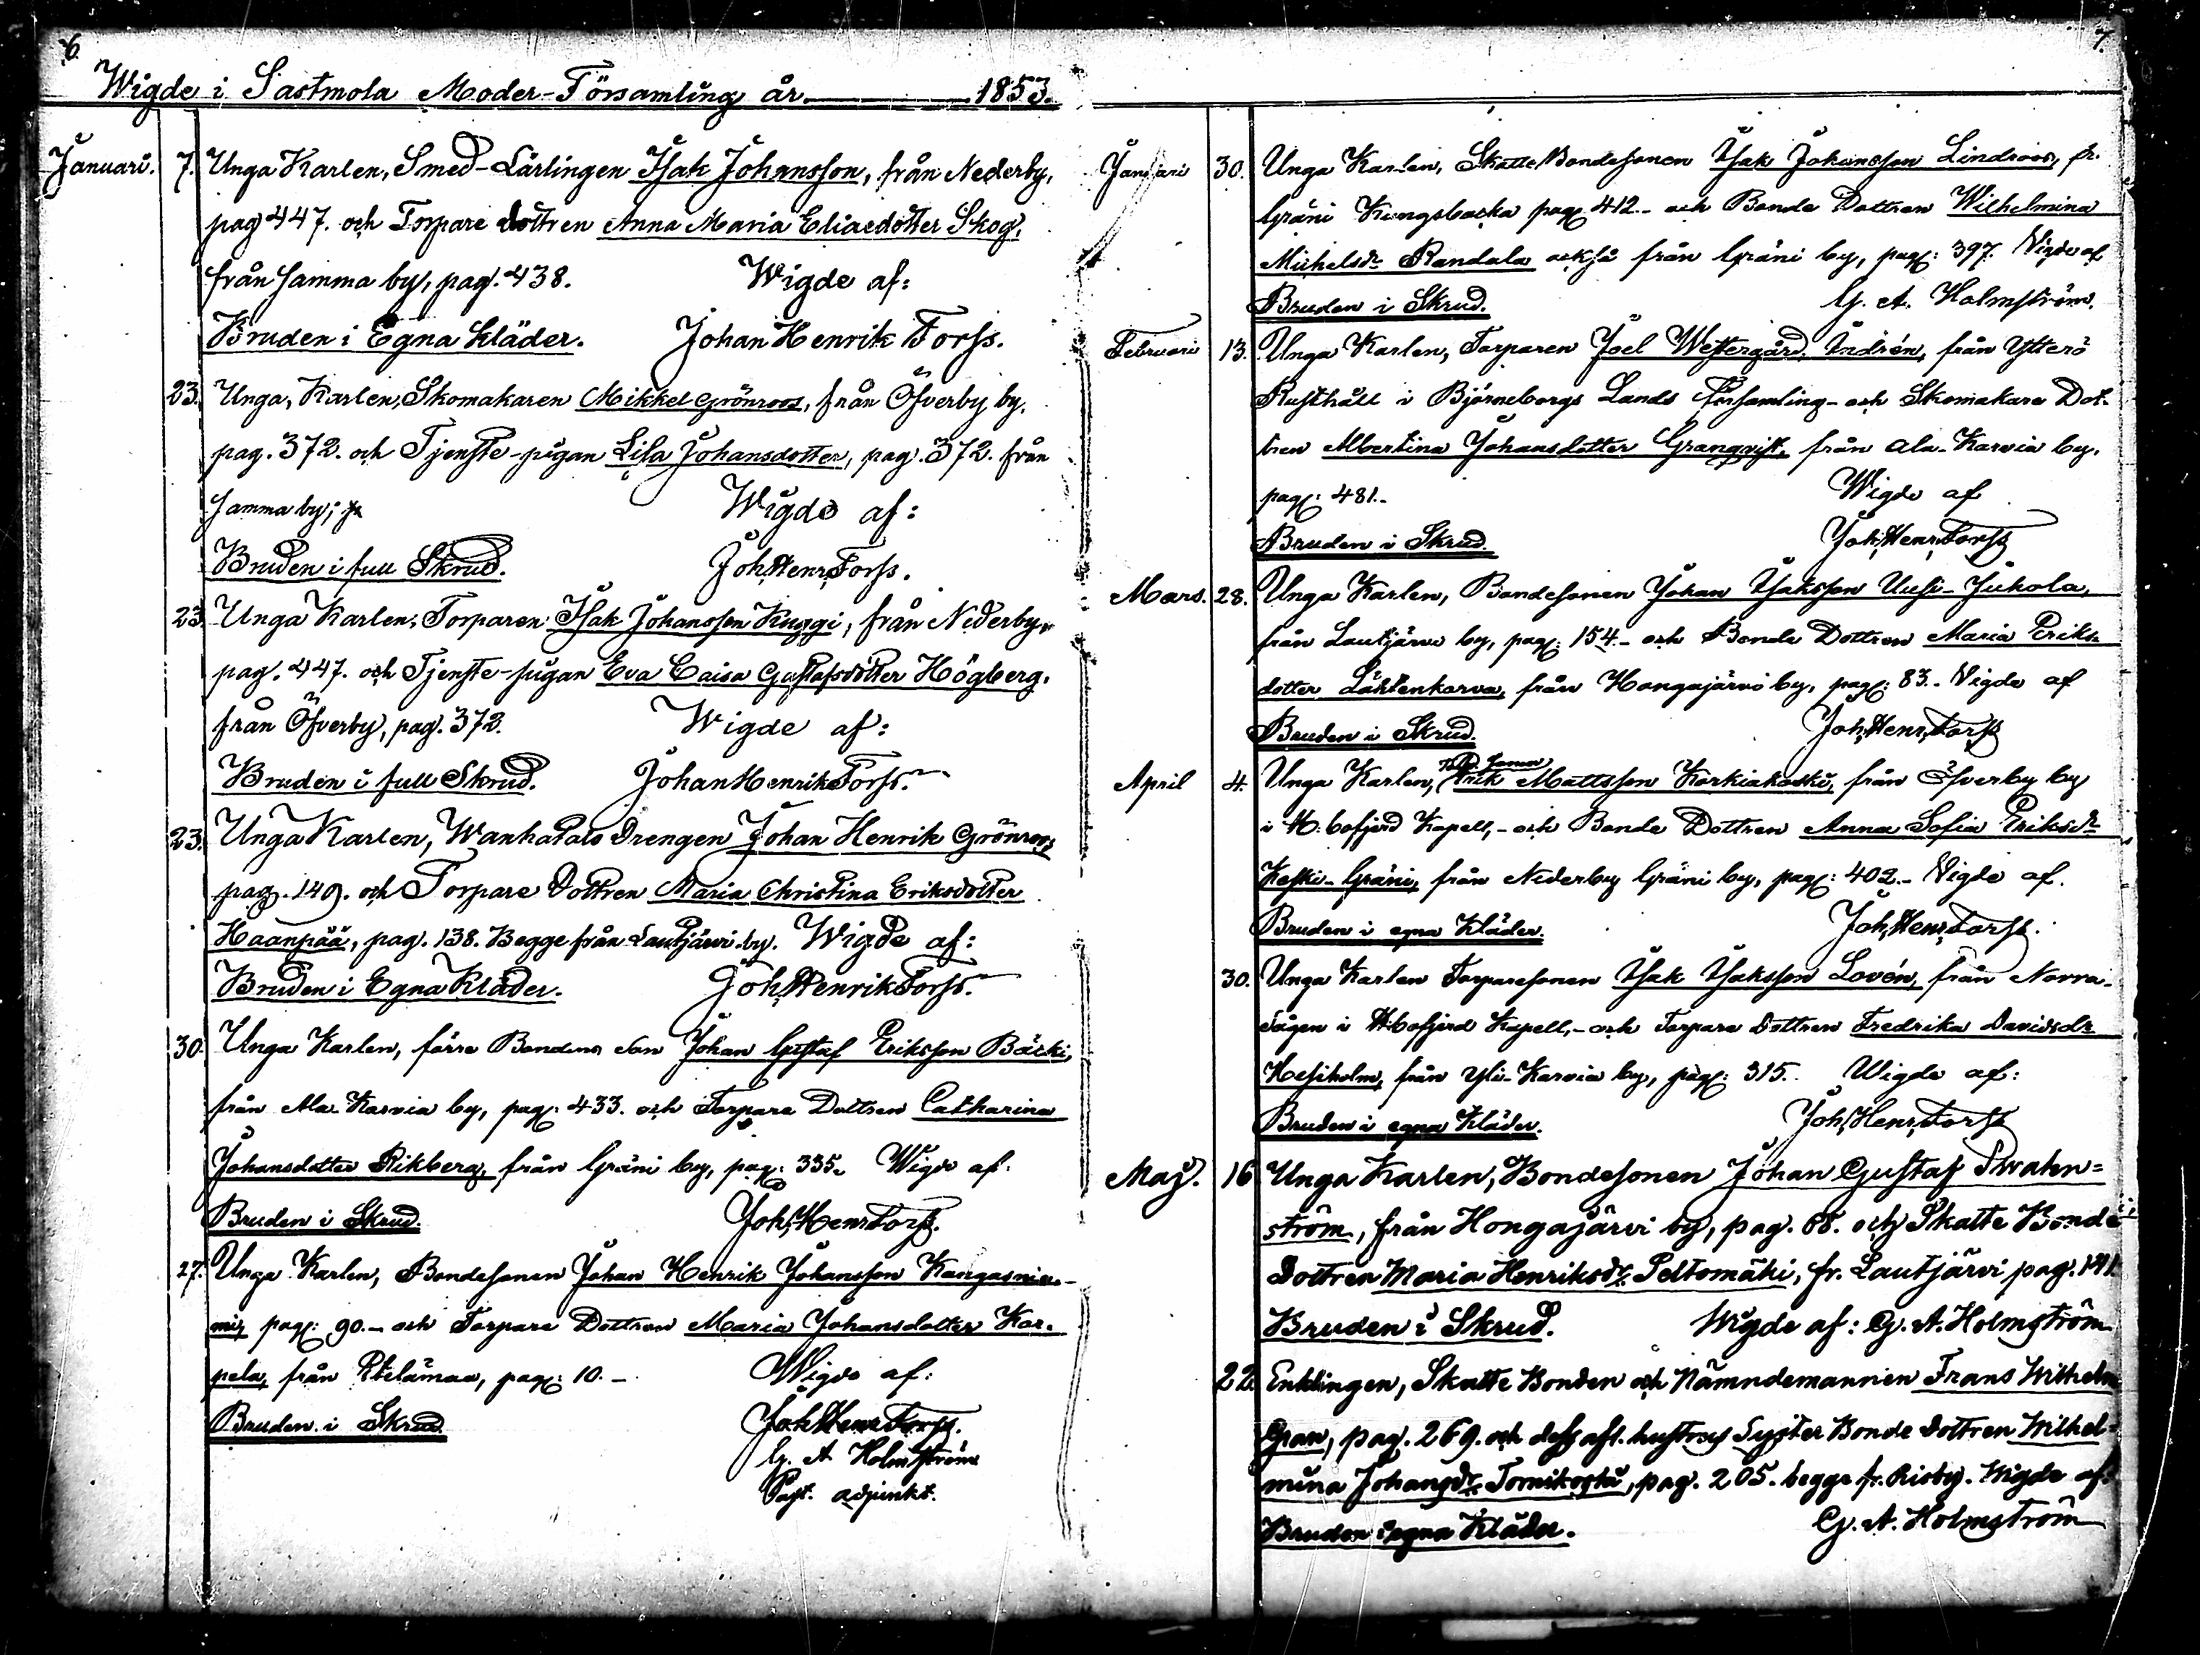 6.
Wigde i Sastmola Moder-Församling år 1853.
Januari. 7. Unga Karlen, Smed-Lärlingen Isak Johansson, från Nederby,
pag 447. och Torpare dottren Anna Maria Eliaedotter Skog,
från samma by, pag. 438. Wigde af:
Bruden i Egna kläder. Johan Henrik Forss.
23. Unga, Karlen, Skomakaren Mikkel Grönroos, från Öfverby by.
pag. 372. och Tjenste-pigan Lisa Johansdotter, pag. 372. från
samma by; Wigde af:
Bruden i full Skrud. Joh. Henr. Forss.
23. Unga Karlen, Torparen Isak Johansson Kuggi, från Nederby,
pag. 447. och Tjenste-pigan Eva Caisa Gustafsdotter Högberg,
från Öfverby, pag. 372. Wigde af:
Bruden i full Skrud. Johan Henrik Forss.
23. Unga Karlen, Wanhatalo Drengen Johan Henrik Grönroos
pag. 149. och Torpare Dottren Maria Christina Eriksdotter
Haanpää, pag. 138. Begge från Lautjärvi by. Wigde af:
Bruden i Egna Kläder. Joh. Henrik Forss.
30. Unga Karlen, förre Bondens Son Johan Gustaf Eriksson Bäcki,
från Ala-Karvia by, pag: 433. och Torpare Dottren Catharina
Johansdotter Rikberg, från Gräni by, pag: 335. Wigde af:
Bruden i Skrud. Joh. Henr. Forss.
27. Unga Karlen, Bondesonen Johan Henrik Johansson Kangasnie-
mi, pag: 90.- och Torpare Dottren Maria Johansdotter Kor-
pela, från pag: 10.- Wigde af:
Bruden i Skrud. Joh. Henr. Forss.
G. A Holmström
Past. adjunkt.
7.
Januari 30. Unga Karlen, Skatte Bondesonen Isak Johansson Lindroos, fr.
Gräni Kungsbacka pag. 412.- och Bonde Dottren Wilhelmina
Michelsdr Randala också från Gräni by, pag: 397. Vigde af
Bruden i Skrud. G. A. Holmström.
Februari 13. Unga Karlen, Torparen Joel Westergård Andrén, från Ytterö
Rusthåll i Björneborgs Lands Församling- och Skomakare Dot-
tren Albertina Johansdotter Granqvist, från Ala-Karvia by.
pag: 481.- Wigde af
Bruden i Skrud. Joh. Henr. Forss
Mars. 28. Unga Karlen, Bondesonen Johan Isaksson Uusi-Jukola,
från Lautjärvi by, pag: 154.- och Bonde Dottren Maria Eriks-
dotter Lähtenkorva, från Hongajärvi by, pag: 83.- Vigde af
Bruden i Skrud. Joh. Henr. Forss
April 4. Unga Karlen, Erik Mattsson Korkiakoski, från Öfverby by
i H: bofjerd Kapell,- och Bonde Dottren Anna Sofia Eriksdr
Keski-Gräni, från Nederby Gräni by, pag: 402.- Vigde af.
Bruden i egna Kläder. Joh. Henr. Forss.
30. Unga Karlen Torparesonen Isak Isaksson Lovén, från Norra-
i H:bofjerd Kapell,- och Torpare Dottren Fredrika Davidsdr
Hesiholm, från Yli-Karvia by, pag: 315. Wigde af:
Bruden i egna Kläder. Joh. Henr. Forss
Maj. 16 Unga Karlen, Bondesonen Johan Gustaf Swahn=
ström, från Hongajärvi by, pag. 68. och Skatte Bonde
Dottren Maria Henriksdr. Peltomäki, fr. Lautjärvi pag. 141.
Bruden i Skrud. Wigde af: G. A. Holmström
22. Enklingen, Skatte Bonden och Nämndemannen Frans Wilhelm
Gran, pag. 269. och dess afl. hustrus Syster Bonde Dottren Wilhel-
mina Johansdr. Tornikoski, pag. 205. begge fr. Risby. Wigde af:
Bruden i egna Kläder. G. A. Holmström